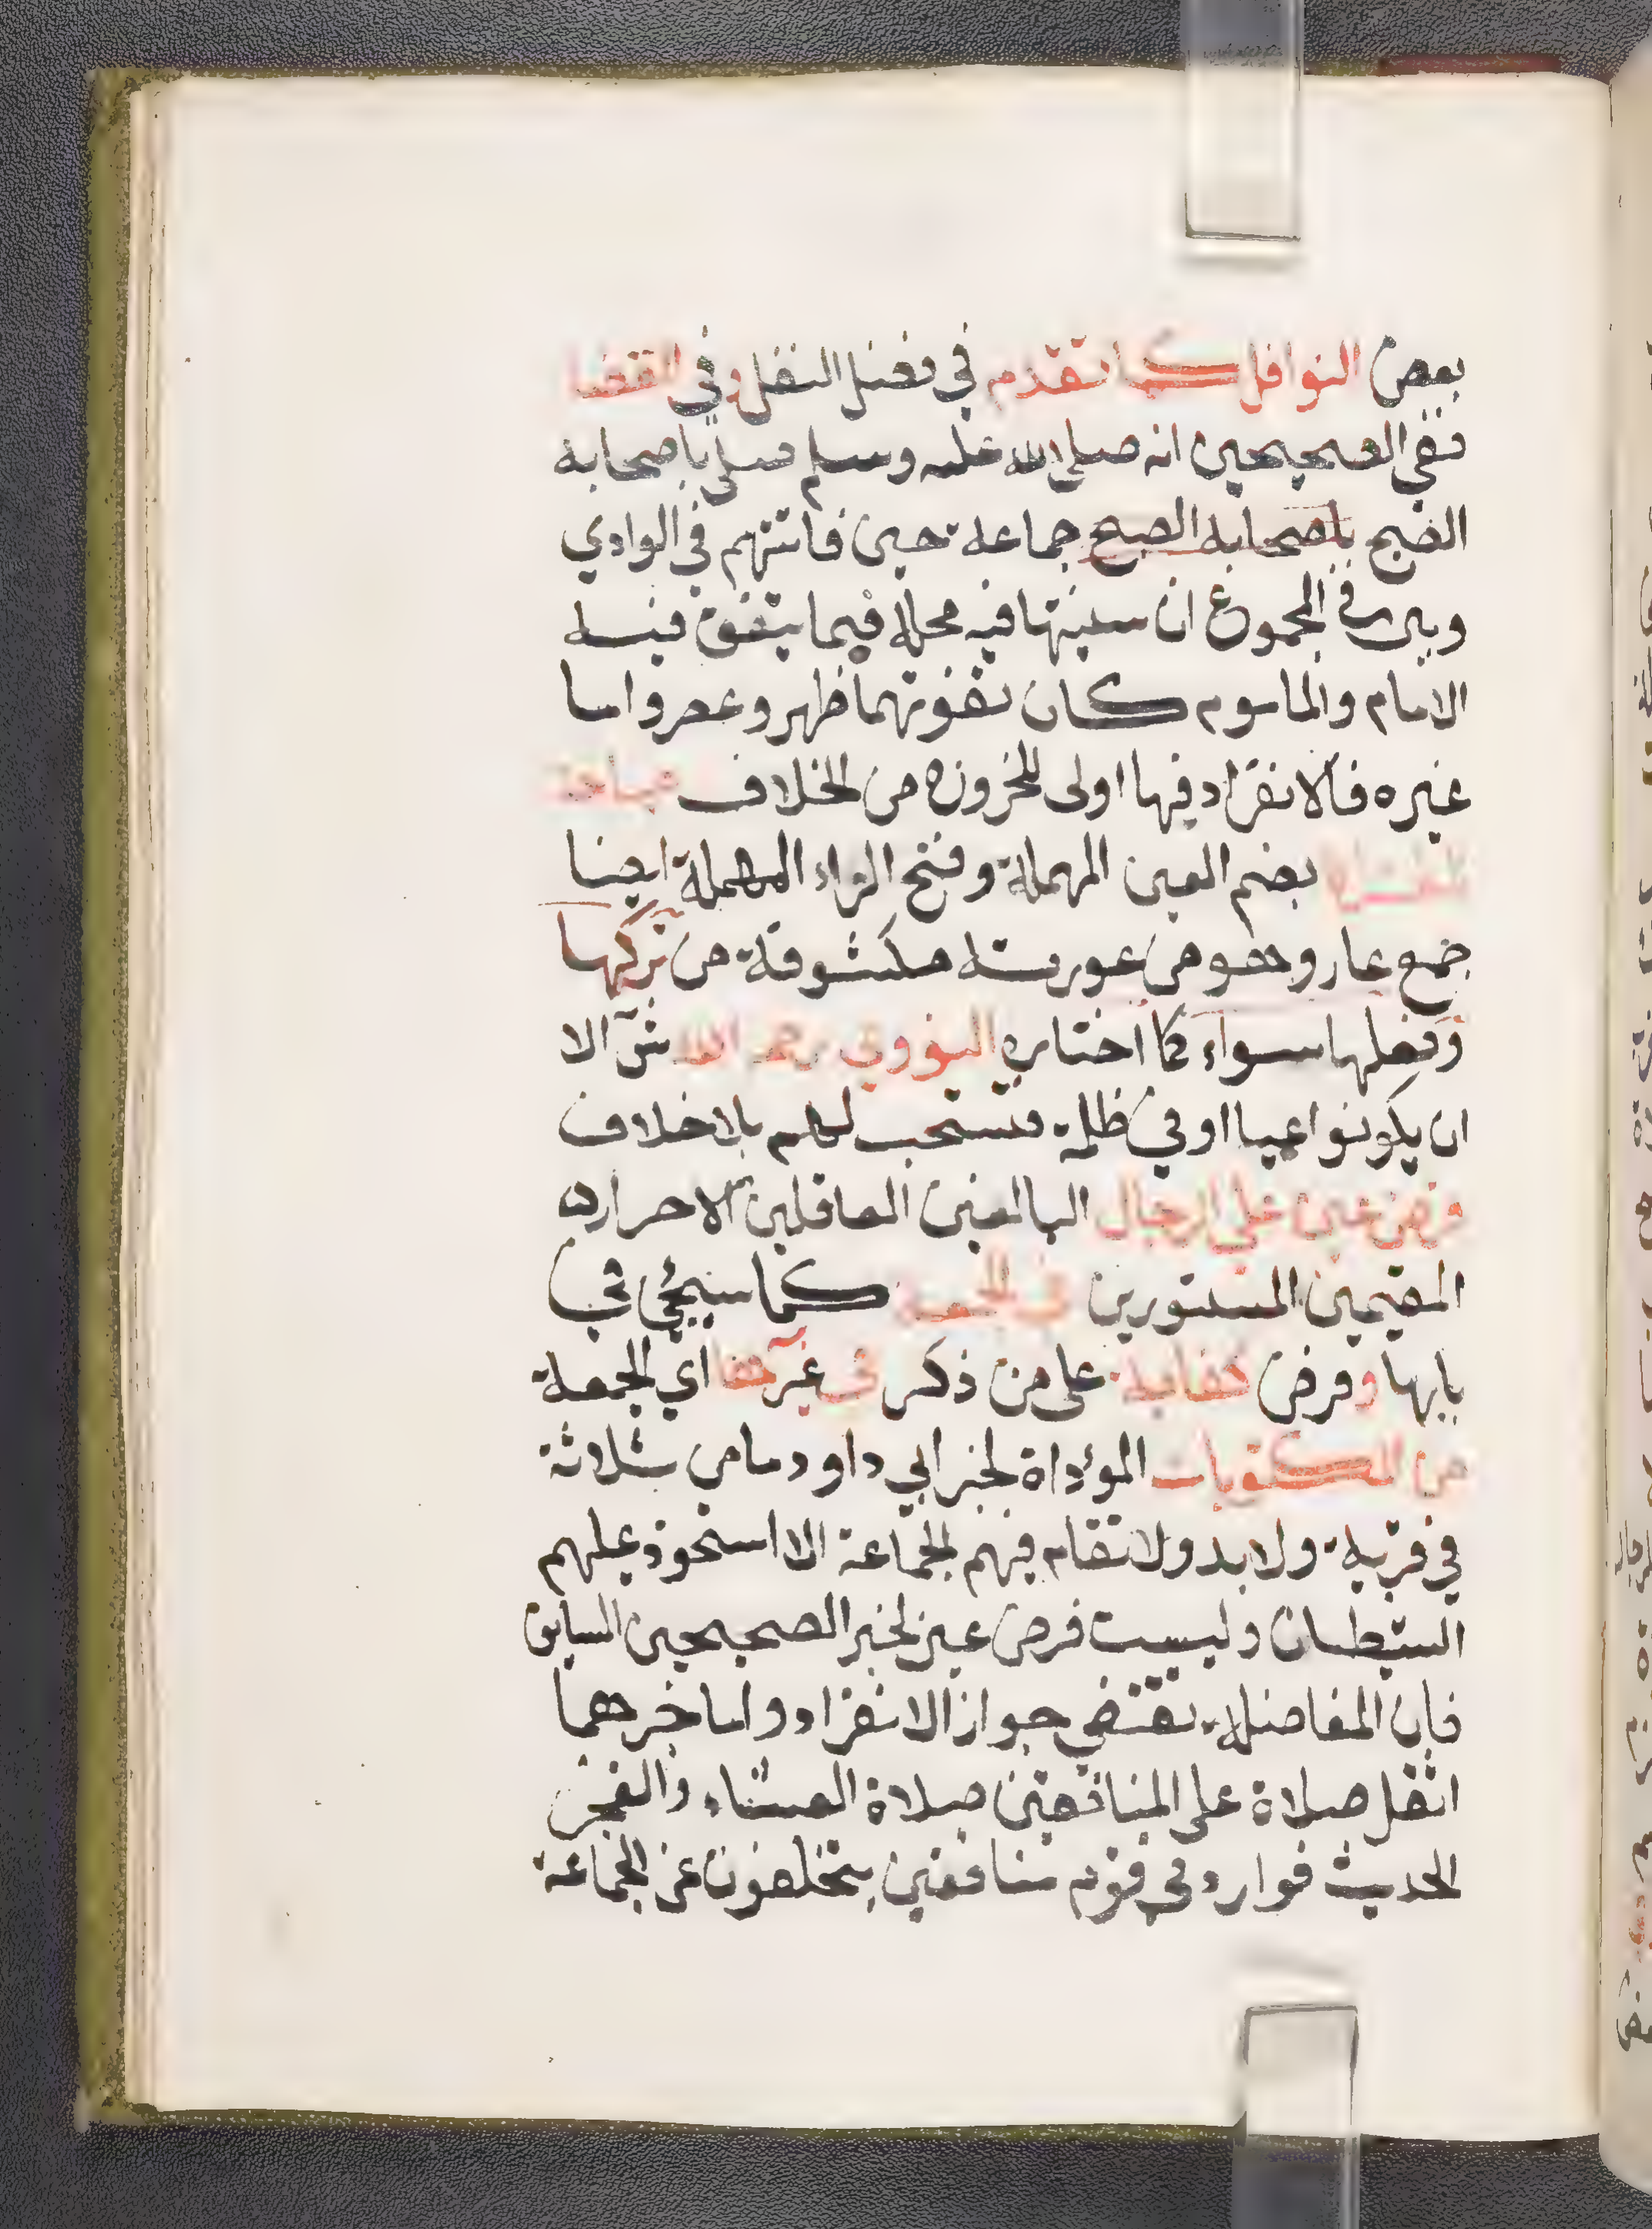 بعض النوافل كما تقدم في فضل النفل وفي القضا
ففي الصحيحين انه صلى الله عليه وسلم صلى باصحابه
الصبح باصحابه الصبح جماعة حين فاتتهم في الوادي
وبين في المجموع ان سنيتها فيه محله فيما يتفق فيه
الامام والماموم كان تفوتهما ظهر وعصر واما
غيره فالانفراد فيها اولى للخروج من الخلاف مباحة
للعراة بضم العين المهملة وفتح الراء المهملة ايضا
جمع عار وهو من عورته مكشوفة من تركها
وفعلها سواء كما اختاره النووي رحمه الله الا
ان يكونوا عميا او في ظلمة فتستحب لهم بلا خلاف
فرض عين على الرجال البالغين العاقلين الاحرار
المقيمين المستورين في الجمعة كما سيجئ في
بابها وفرض كفاية على من ذكر في غيرها اي الجمعة
من المكتوبات المؤداة لخبر ابي داود ما من ثلاثة
في قرية ولا بدو لا تقام فيهم الجماعة الا استحوذ عليهم
الشيطان وليست فرض عين لخبر الصحيحين السابق
فان المفاضلة تقتضي جواز الانفراد واما خبرهما
اثقل صلاة على المنافقين صلاة العشاء والفجر
الحديث فوارد في قوم منافقين يتخلفون عن الجماعة